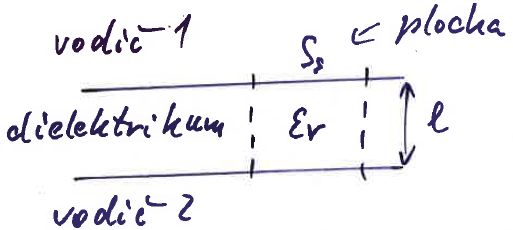 vodič 1
Ss ← plocha
dielektrikum εr l
vodič 2